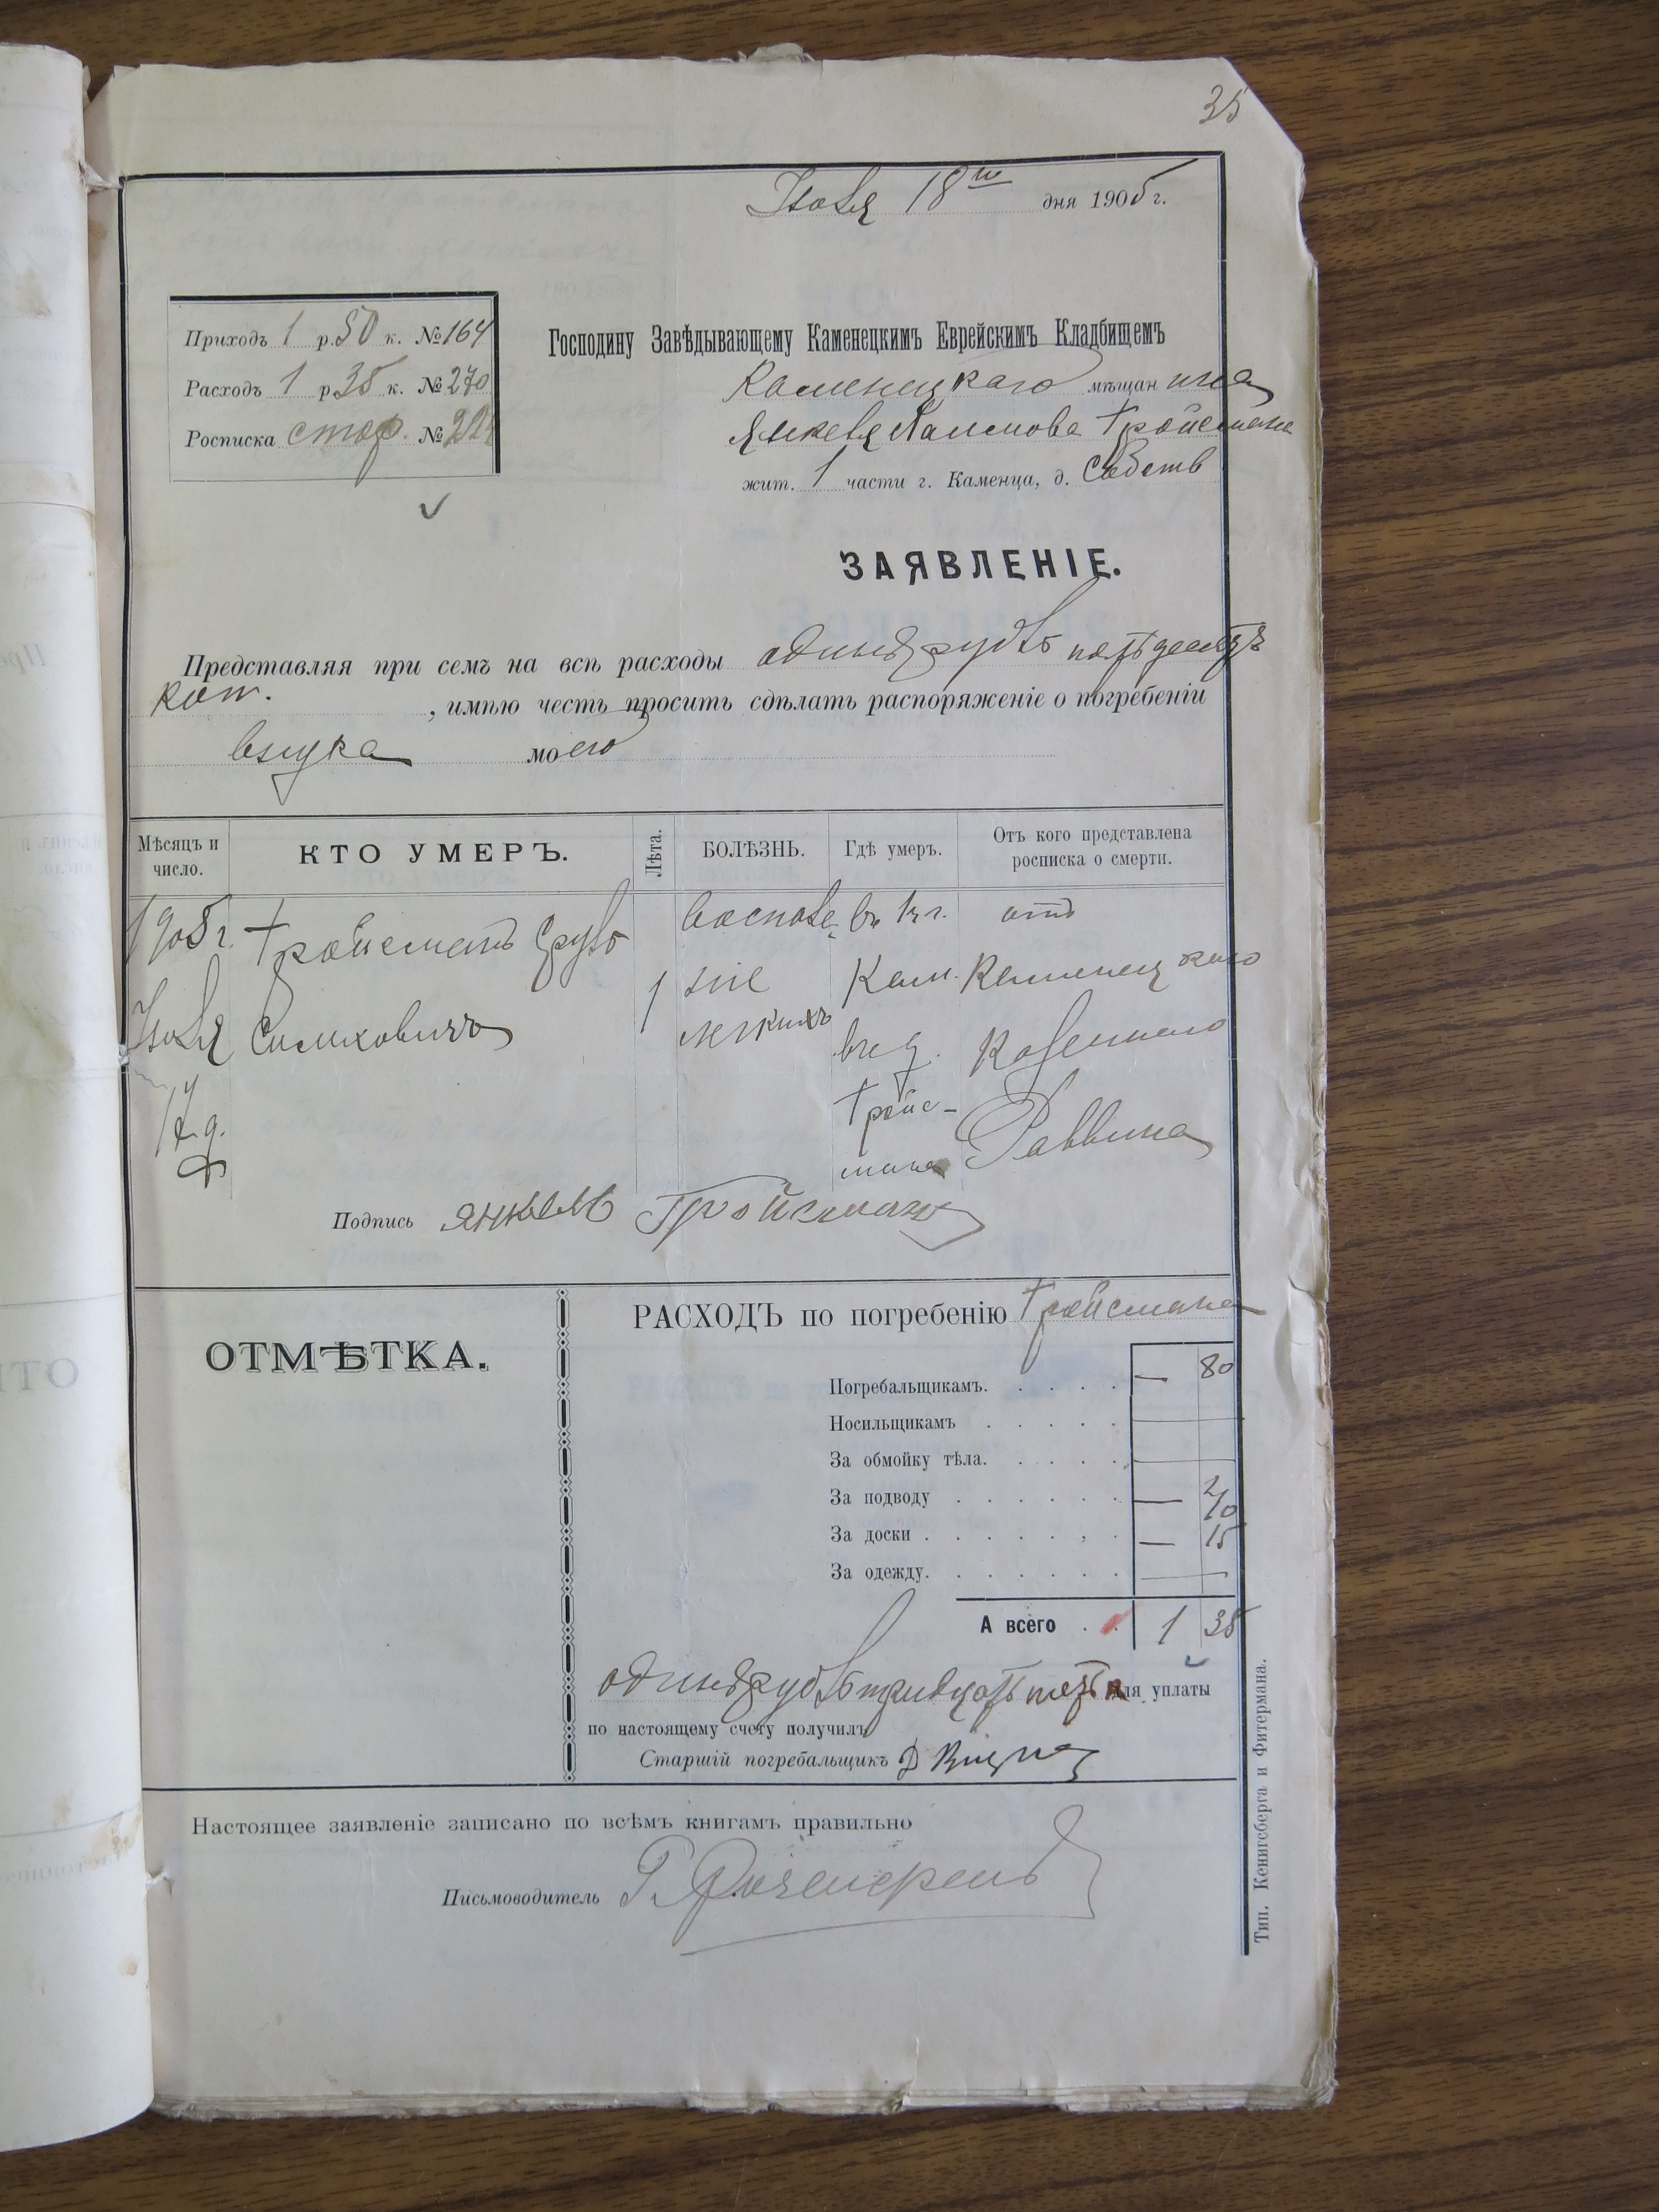 35
Іюля 18го дня 1905 г.
Приходъ 1 р. 50 к. № 164
Расходъ 1 р. 35 к. № 270
Росписка стар. №
Господину Завѣдывающему Каменецкимъ Еврейскимъ Кладбищемъ
Каменецкаго мѣщанина
Янкеля Гройсмана
жит. 1 части г. Каменца, д. Собств
ЗАЯВЛЕНІЕ.
Представляя при семъ на всѣ расходы одинъ рубль пятьдесятъ
коп. , имѣю честь просить сдѣлать распоряженіе о погребеніи
внука моего
Мѣсяцъ и число.
КТО УМЕРЪ.
Лѣта.
БОЛѢЗНЬ.
Гдѣ умеръ.
Отъ кого представлена росписка о смерти.
1905 г. Гройсманъ Сруль воспале- въ 1 ч г. отъ
Іюля Симховичъ 1 ніе Кам. Каменецкаго
17 д. легкихъ въ д. Казеннаго
Гройс-
мана Раввина
Подпись Янкель Гройсман
ОТМѢТКА.
РАСХОДЪ по погребенію Гройсмана
Погребальщикамъ. — 80
Носильщикамъ
За обмойку тѣла.
За подводу — 40
За доски — 15
За одежду.
А всего 1 35
одинъ рубль тридцать пять к. для уплаты
по настоящему счету получилъ
Старшій погребальщикъ
Настоящее заявленіе записано по всѣмъ книгамъ правильно
Письмоводитель
Тип. Кенигсберга и Фитермана.